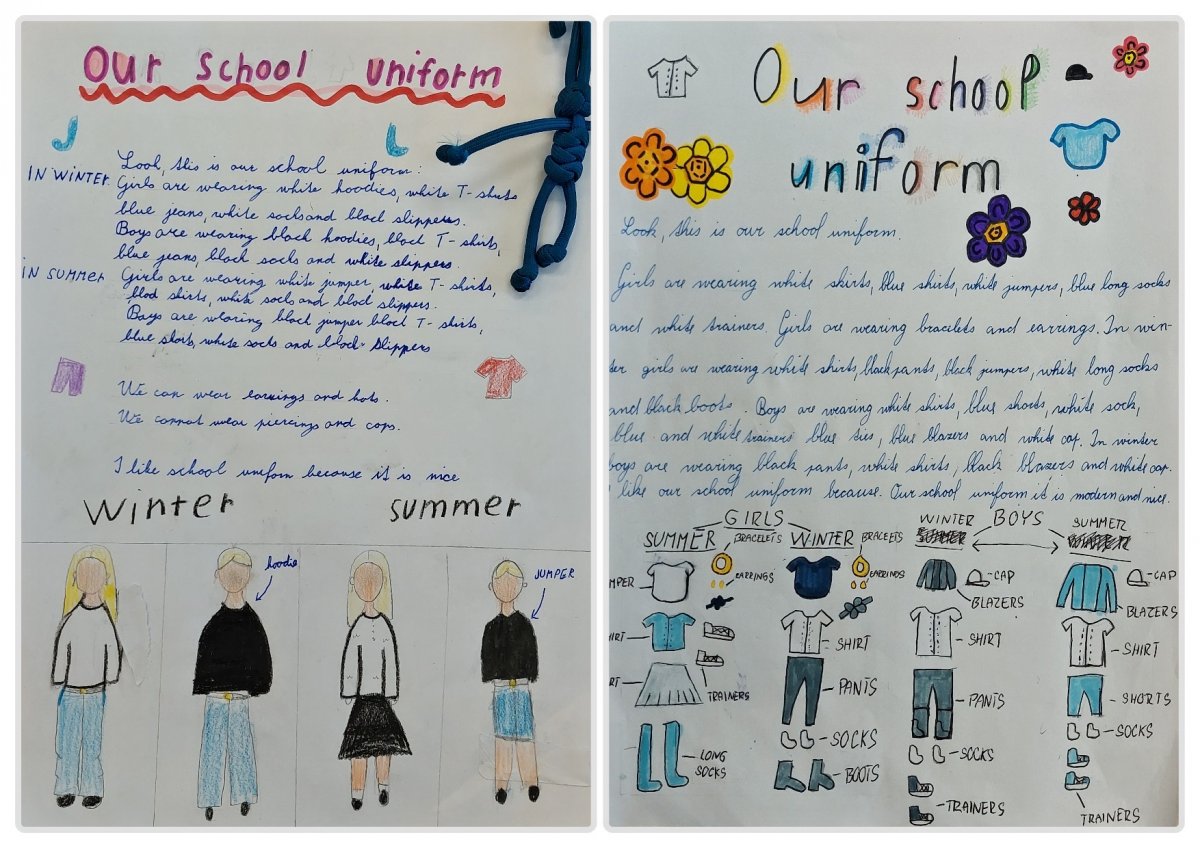 Our school uniform
IN WINTER
Look, this is our school uniform:
Girls are wearing white hoodies, white T-shirts
blue jeans, white socks and black slippers.
Boys are wearing black hoodies, black T-shirts,
blue jeans, black socks and white slippers.
IN SUMMER
Girls are wearing white jumper, white T-shirts,
skirts, white socks and black slippers.
Boys are wearing black jumper black T-shirts,
blue shorts, white socks and black slippers
We can wear earrings and hats.
We cannot wear piercings and caps.
I like school uniform because it is nice
Winter
summer
hoodie
JUMPER
Our school
uniform
Look, this is our school uniform.
Girls are wearing white shirts, blue shirts, white jumpers, blue long socks
and white trainers. Girls are wearing bracelets and earrings. In win-
ter girls are wearing white shirts, black pants, black jumpers, white long socks
and black boots. Boys are wearing white shirts, blue shorts, white sock,
blue and white trainers blue ties, blue blazers and white cap. In winter
boys are wearing black pants, white shirts, black blazers and white cap.
I like our school uniform because. Our school uniform it is modern and nice.
GIRLS
SUMMER
BRACELETS
WINTER
BRACELETS
WINTER
BOYS
SUMMER
MPER
EARRINGS
EARRINGS
CAP
BLAZERS
CAP
BLAZERS
IRT
SHIRT
SHIRT
SHIRT
RT
TRAINERS
PANTS
PANTS
SHORTS
LONG
SOCKS
SOCKS
BOOTS
SOCKS
TRAINERS
SOCKS
TRAINERS